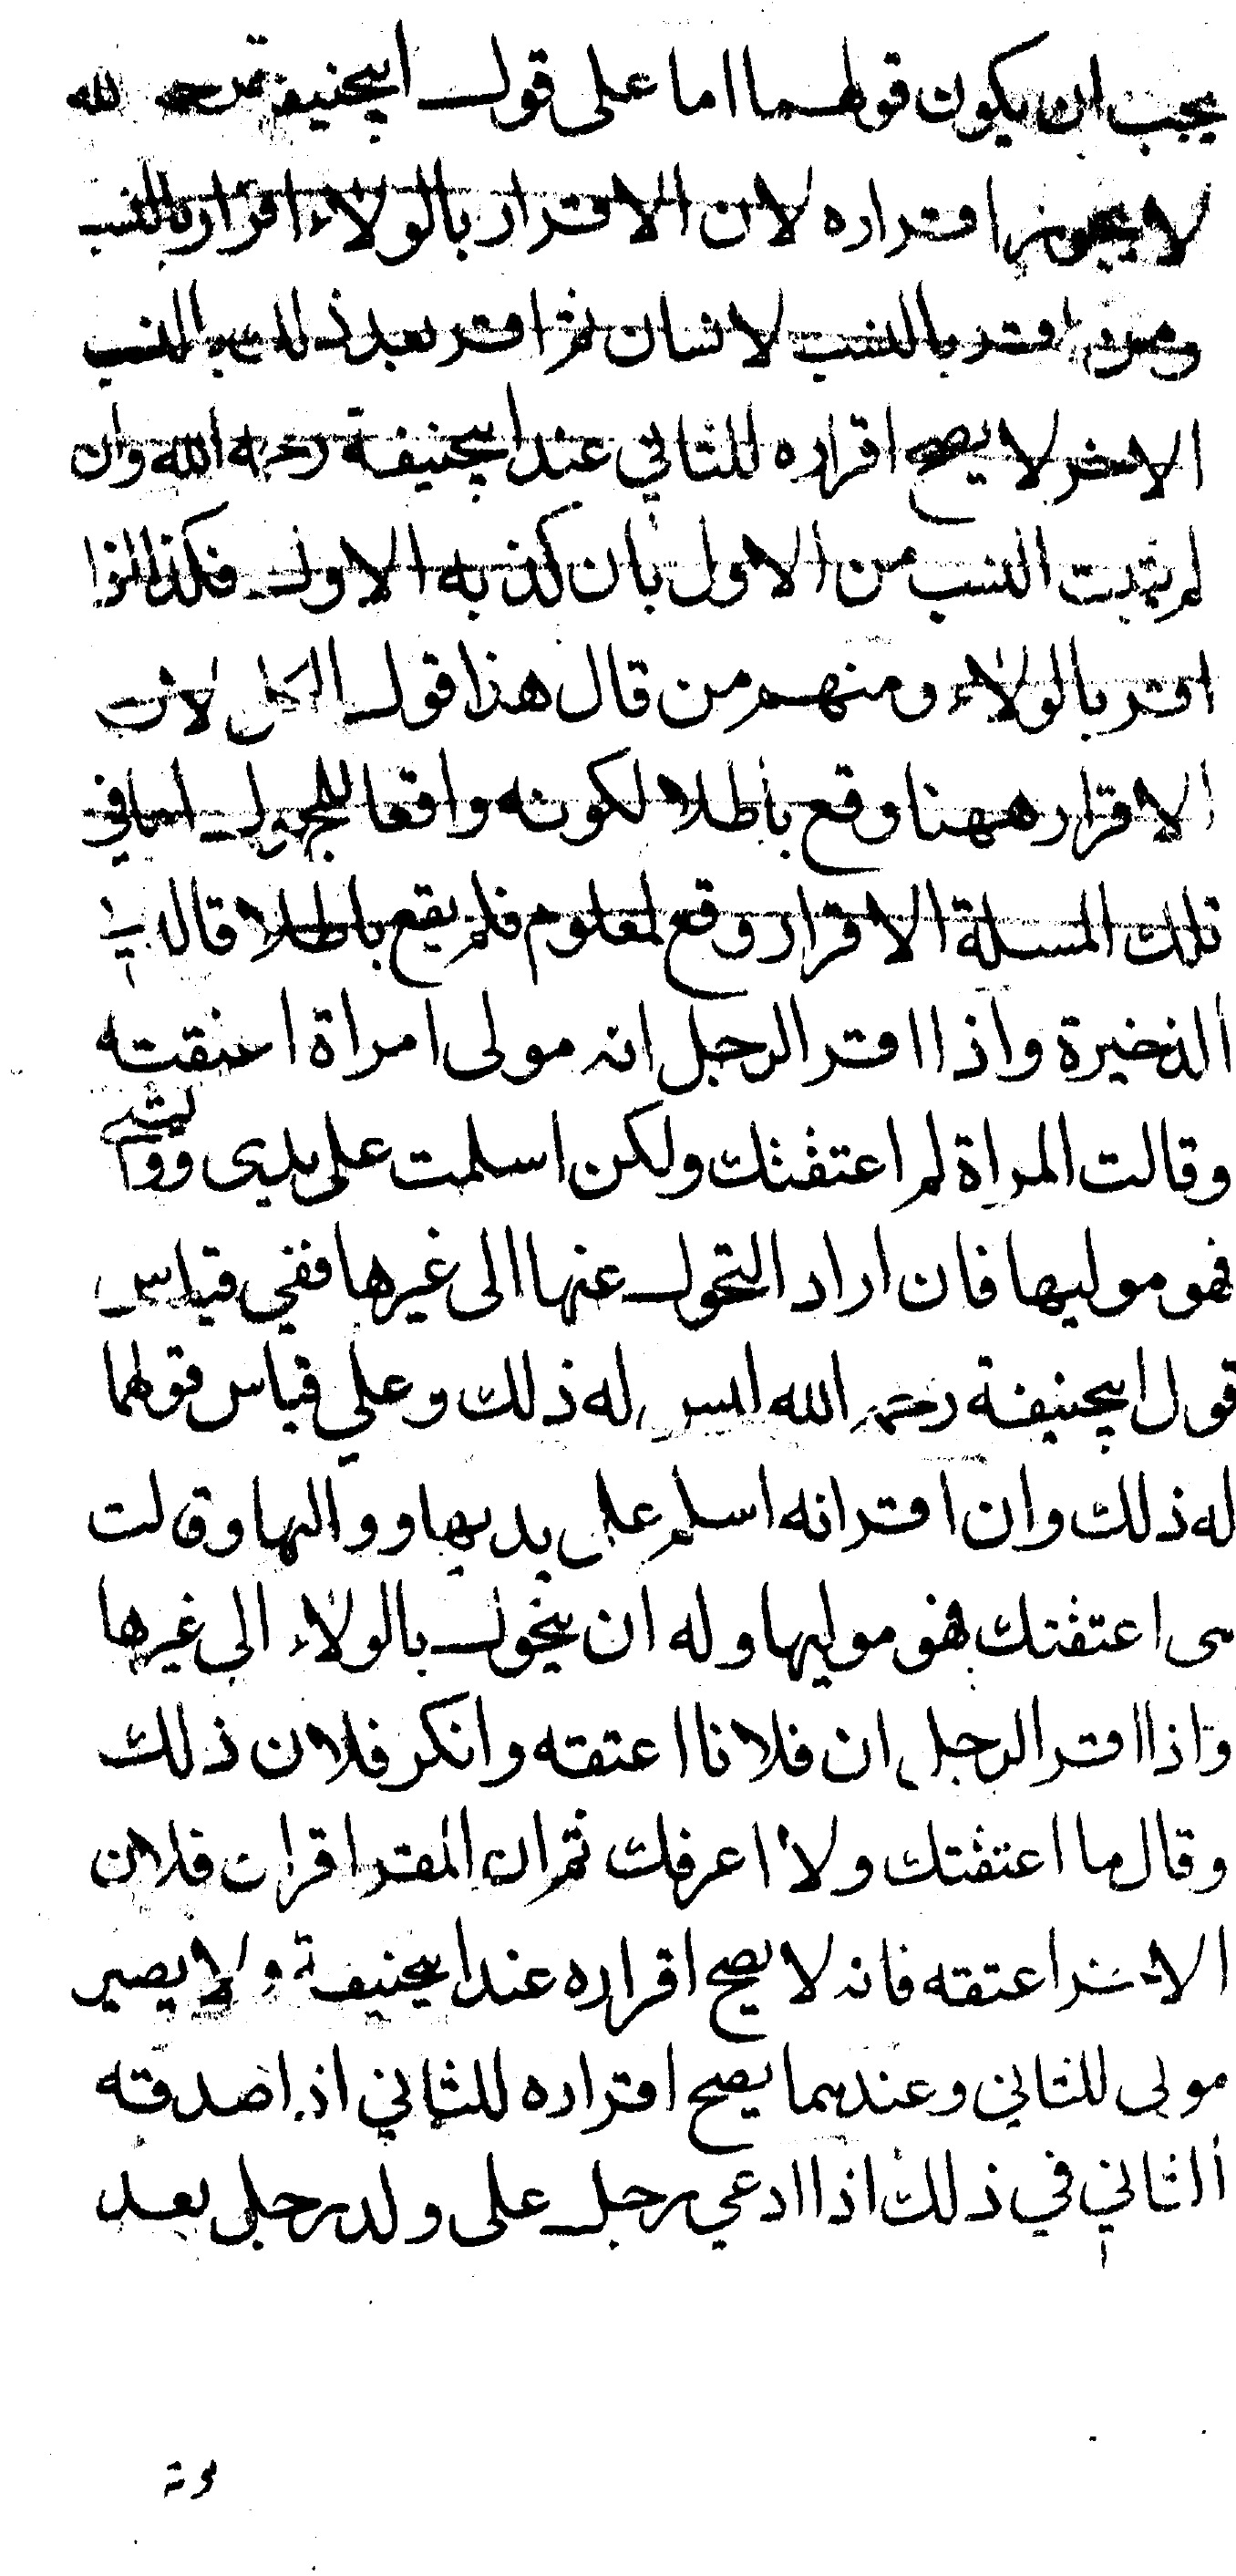 يجب ان يكون قولهما اما على قول ابيحنيفة رحمه الله
لا يجوز اقراره لان الاقرار بالولاء اقرار بالنسب
ومن اقر بالنسب لانسان ثم اقر بعد ذلك بالنسب
الاخر لا يصح اقراره للثاني عند ابيحنيفة رحمه الله وان
لم يثبت النسب من الاول بان كذبه الاول فكذا اذا
اقر بالولاء ومنهم من قال هذا قول الكل لان
الاقرار ههنا وقع باطلا لكونه واقعا للمجهول اما في
تلك المسلة الاقرار وقع لمعلوم فلم يقع باطلا قال في
الذخيرة واذا اقر الرجل انه مولى امراة اعتقته
وقالت المراة لم اعتقتك ولكن اسلمت على يدى ووا ليتنى
فهو موليها فان اراد التحول عنها الى غيرها ففي قياس
قول ابيحنيفة رحمه الله ليس له ذلك وعلي قياس قولهما
له ذلك وان اقر انه اسلم على يديها ووالها وقالت
هى اعتقتك فهو موليها وله ان يتحول بالولاء الى غيرها
واذا اقر الرجل ان فلانا اعتقه وانكر فلان ذلك
وقال ما اعتقتك ولا اعرفك ثم ان المقر اقر ان فلان
الاخر اعتقه فانه لا يصح اقراره عند ابيحنيفة ولا يصير
مولى للثاني وعندهما يصح اقراره للثاني اذا صدقه
الثاني في ذلك اذا ادعي رجل على ولد رجل بعد